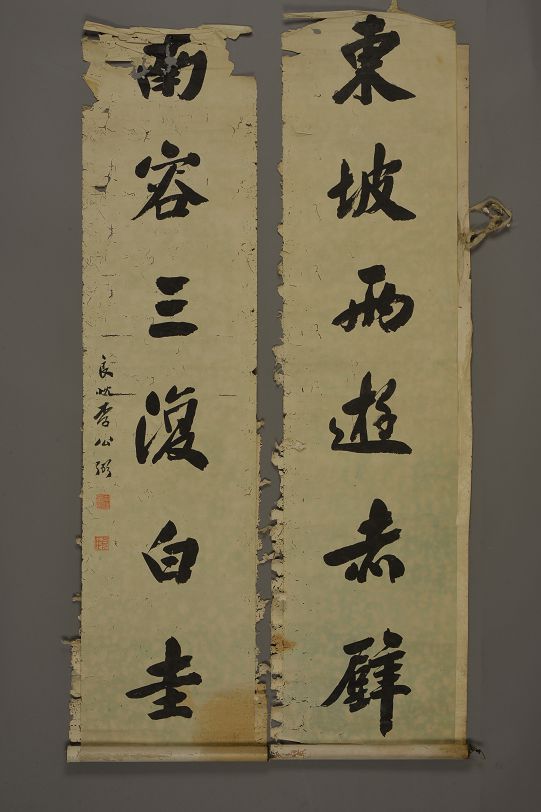 東坡兩遊赤壁
南容三復白圭
良忱李公弼